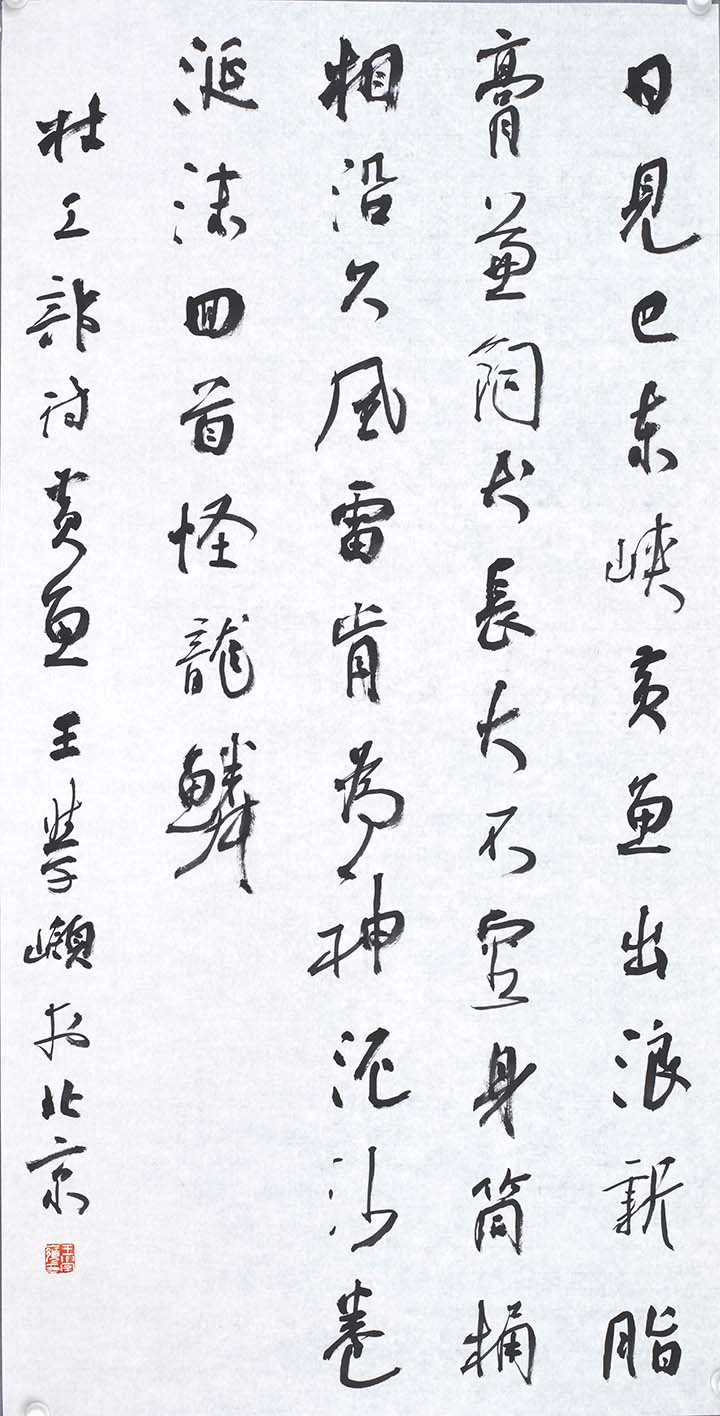 日見巴东峡黄魚出浪新脂
膏兼飼犬長大不容身筒桶
相沿久風雷肯為神泥沙卷
涎沫回首怪龍鱗
杜工部詩黄魚王學嶺於北京